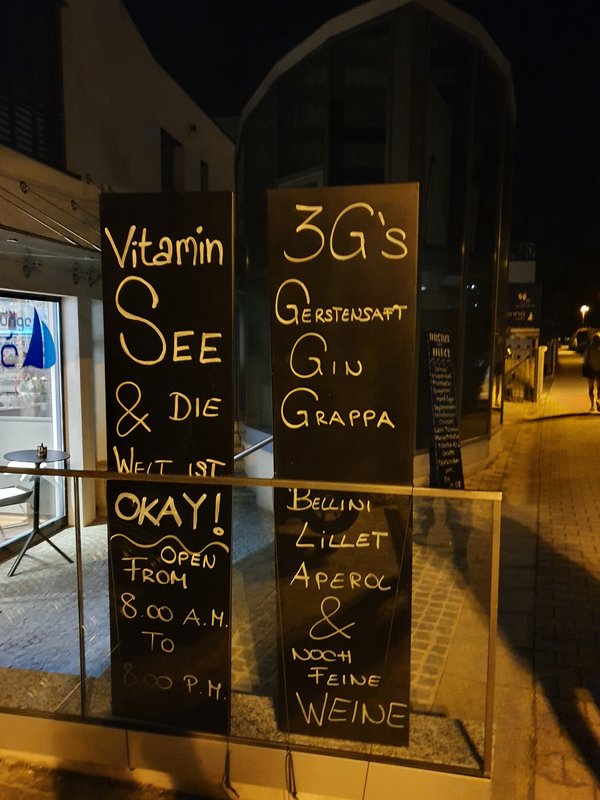 Vitamin
SEE
& DIE
WELT IST
OKAY!
OPEN
FROM
8.00 A.M.
TO
8.00 P.M.
3G's
GERSTENSAFT
GIN
GRAPPA
BELLINI
LILLET
APEROL
&
NOCH
FEINE
WEINE